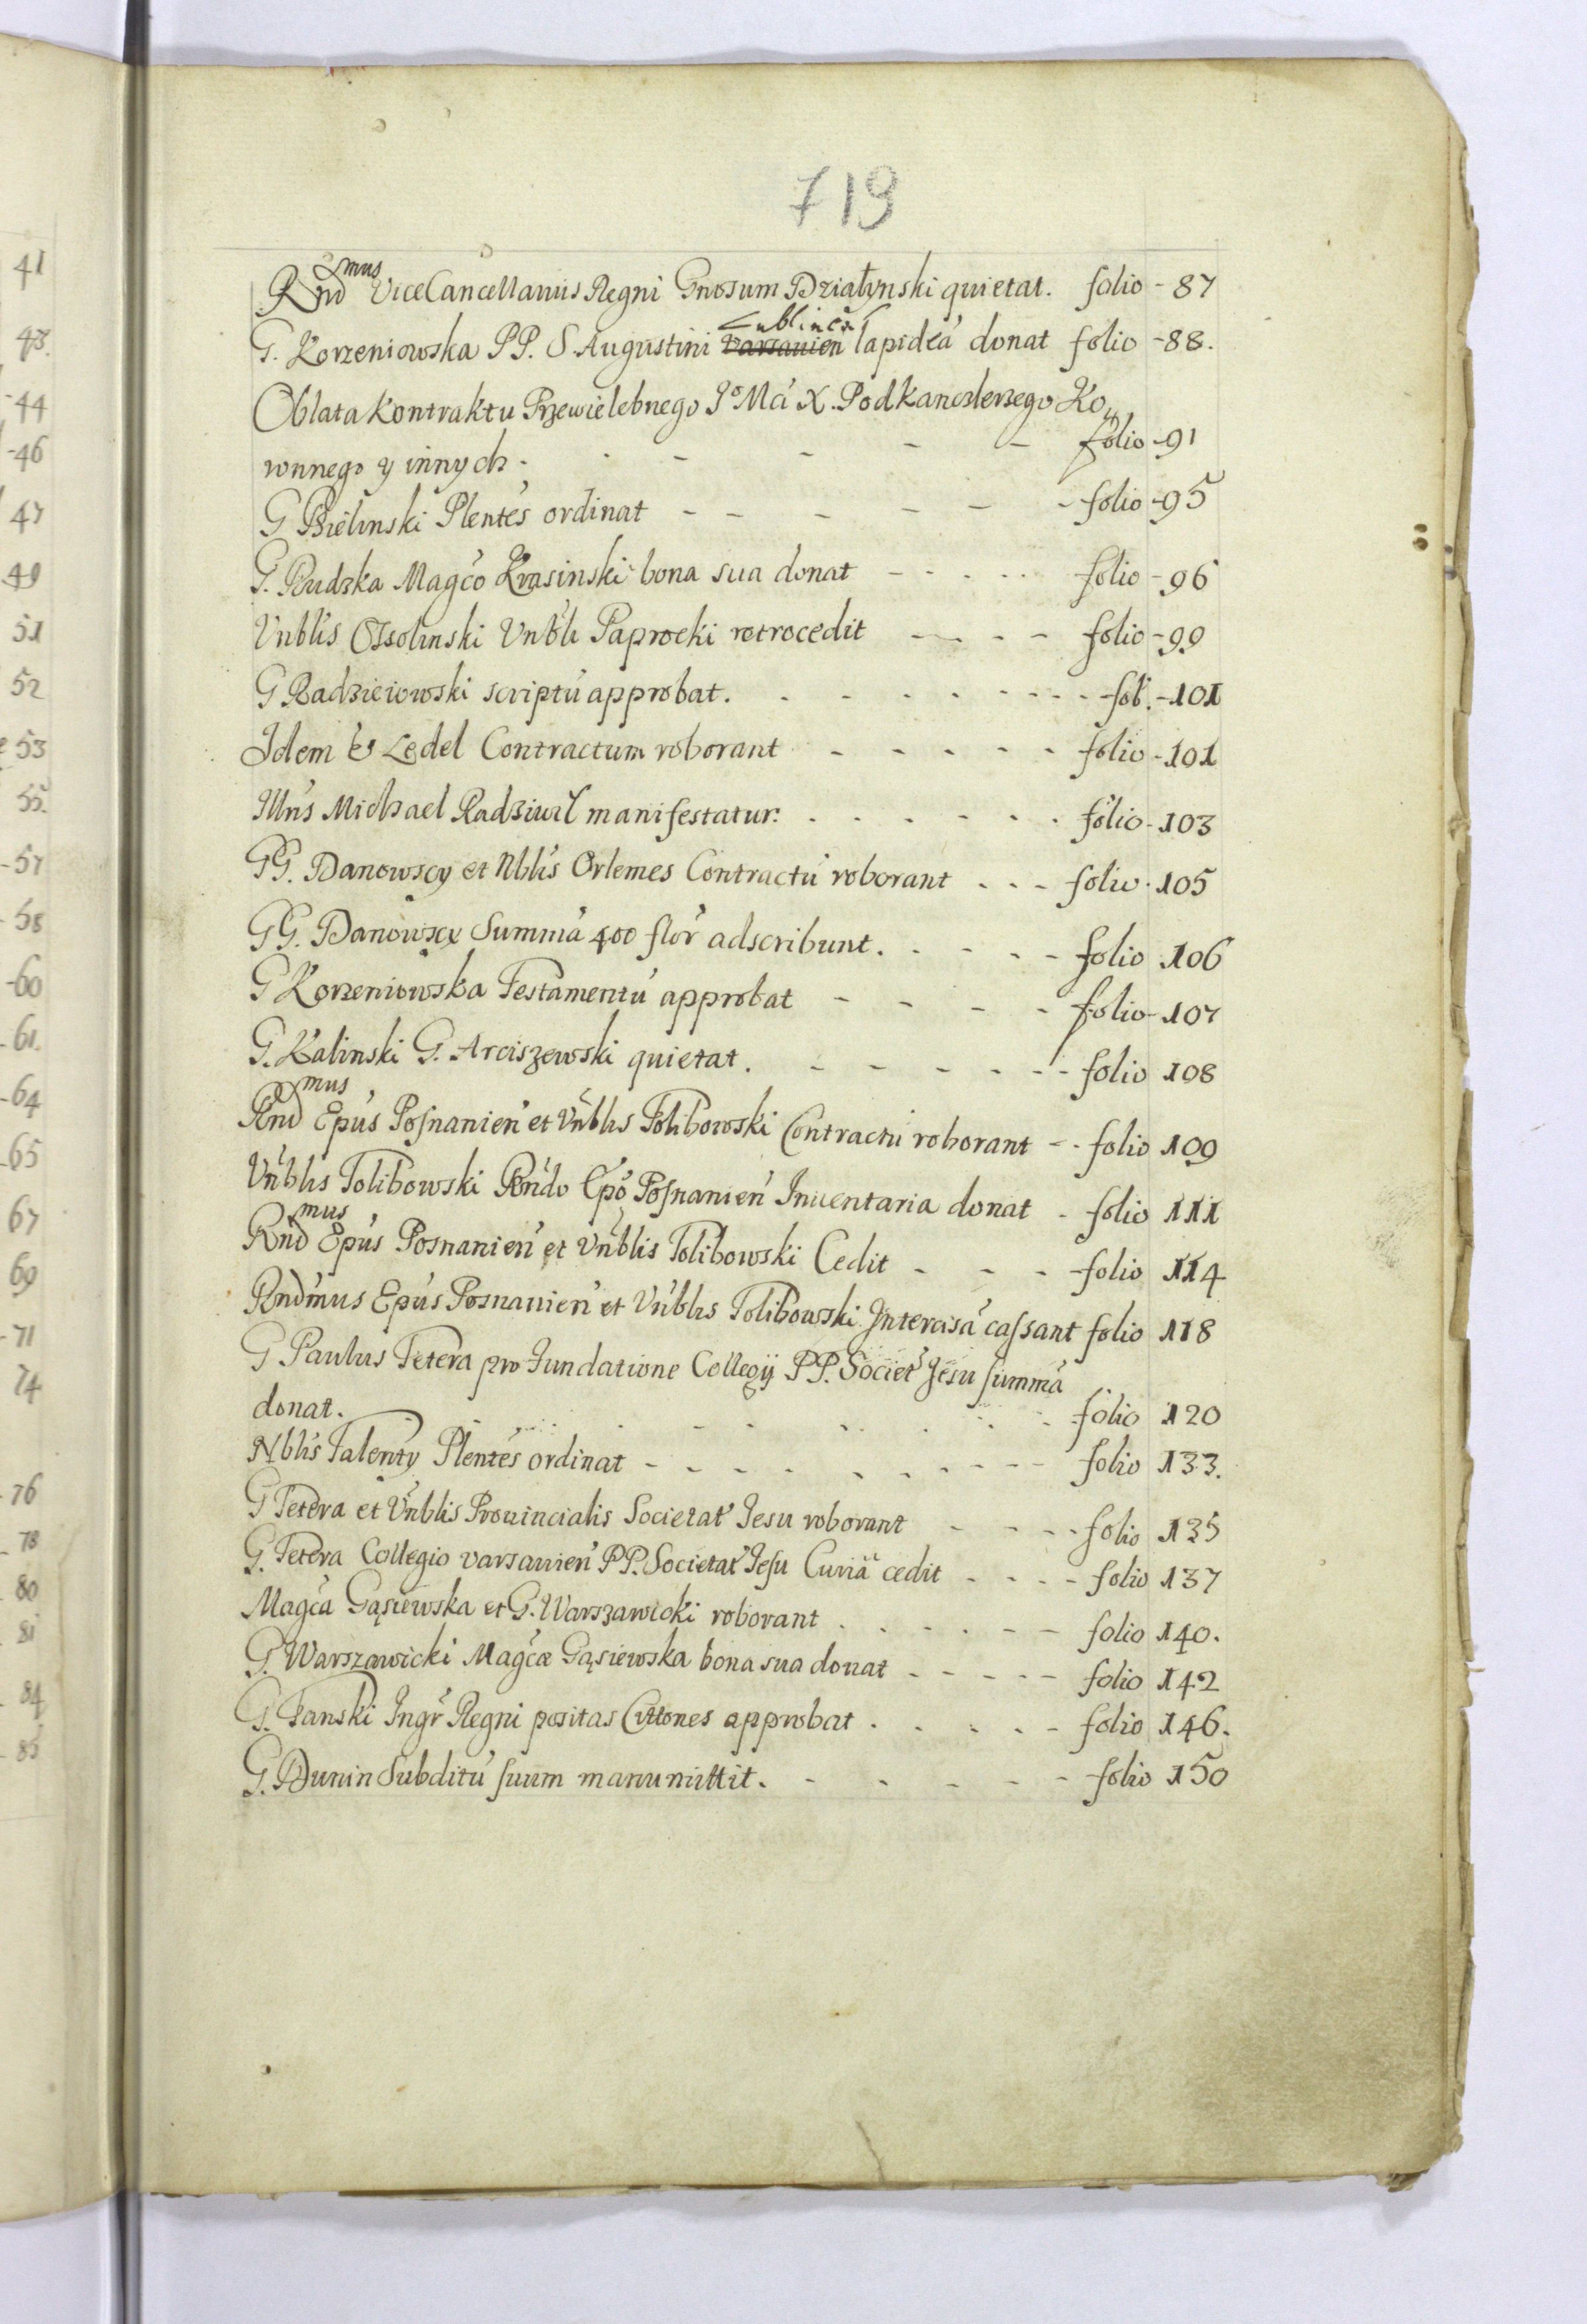 719
Rnd mus ViceCancellarius Regni Gnosum Działynski quietat. folio - 87
G. Korzeniowska PP. S. Augustini Varsavien Lublinen lapideá donat folio - 88.
Oblata Kontraktu Przewielebnego JoMci X. Podkanclerzego Ko„
ronnego y innych - folio - 91
G Bielinski Plentes ordinat - - - - - - folio - 95
G. Rudzka Magco Krasinski bona sua donat - - - - - folio - 96
Vnblis Ossolinski Vnbli Paprocki retrocedit - - - - folio - 99
G Radzieiowski scriptu approbat. - - - - - - fol. - 101
Idem & Ledel Contractum roborant - - - - - folio - 101
Illris Michael Radziwił manifestatur. - - - - - folio - 103
GG. Danowscy et Nblis Orlemes Contractu roborant - - - folio - 105
GG. Danowscy Summa 400 flor adscribunt. - - - - folio 106
G Korzeniowska Testamentu approbat - - - - folio - 107
G. Kalinski G. Arciszewski quietat. - - - - - - folio 108
Rnd mus Epus Posnanien et Vnblis Tolibowski Contractu roborant - - folio 109
Vnblis Tolibowski Rndo Epo Posnanien Inuentaria donat - folio 111
Rnd mus Epus Posnanien et Vnblis Tolibowski Cedit - - - folio 114
Rndmus Epus Posnanien et Vnblis Tolibowski Intercisa cassant folio 118
G Paulus Tetera pro Fundatione Collegij PP. Societ Jesu summa
donat. - - - - - folio 120
Nblis Talenty Plentes ordinat - - - - - - - - - folio 133.
G Tetera et Vnblis Prouincialis Societat Jesu roborant - - - - folio 135
G. Tetera Collegio varsavien PP. Societat Jesu Curia cedit - - - - folio 137
Magca Gąsiewska et G. Warszawicki roborant - - - - - - folio 140.
G. Warszawicki Magcæ Gąsiewska bona sua donat - - - - - folio 142
G. Fanski Ingr Regni positas Cittones approbat - - - - - folio 146.
G. Dunin Subditu suum manumittit. - - - - - folio 150
41
43.
44
46
47
49
51
52
53
55.
57
58
60
61.
64
65
67
69
71
74
76
78
80
81
84
85